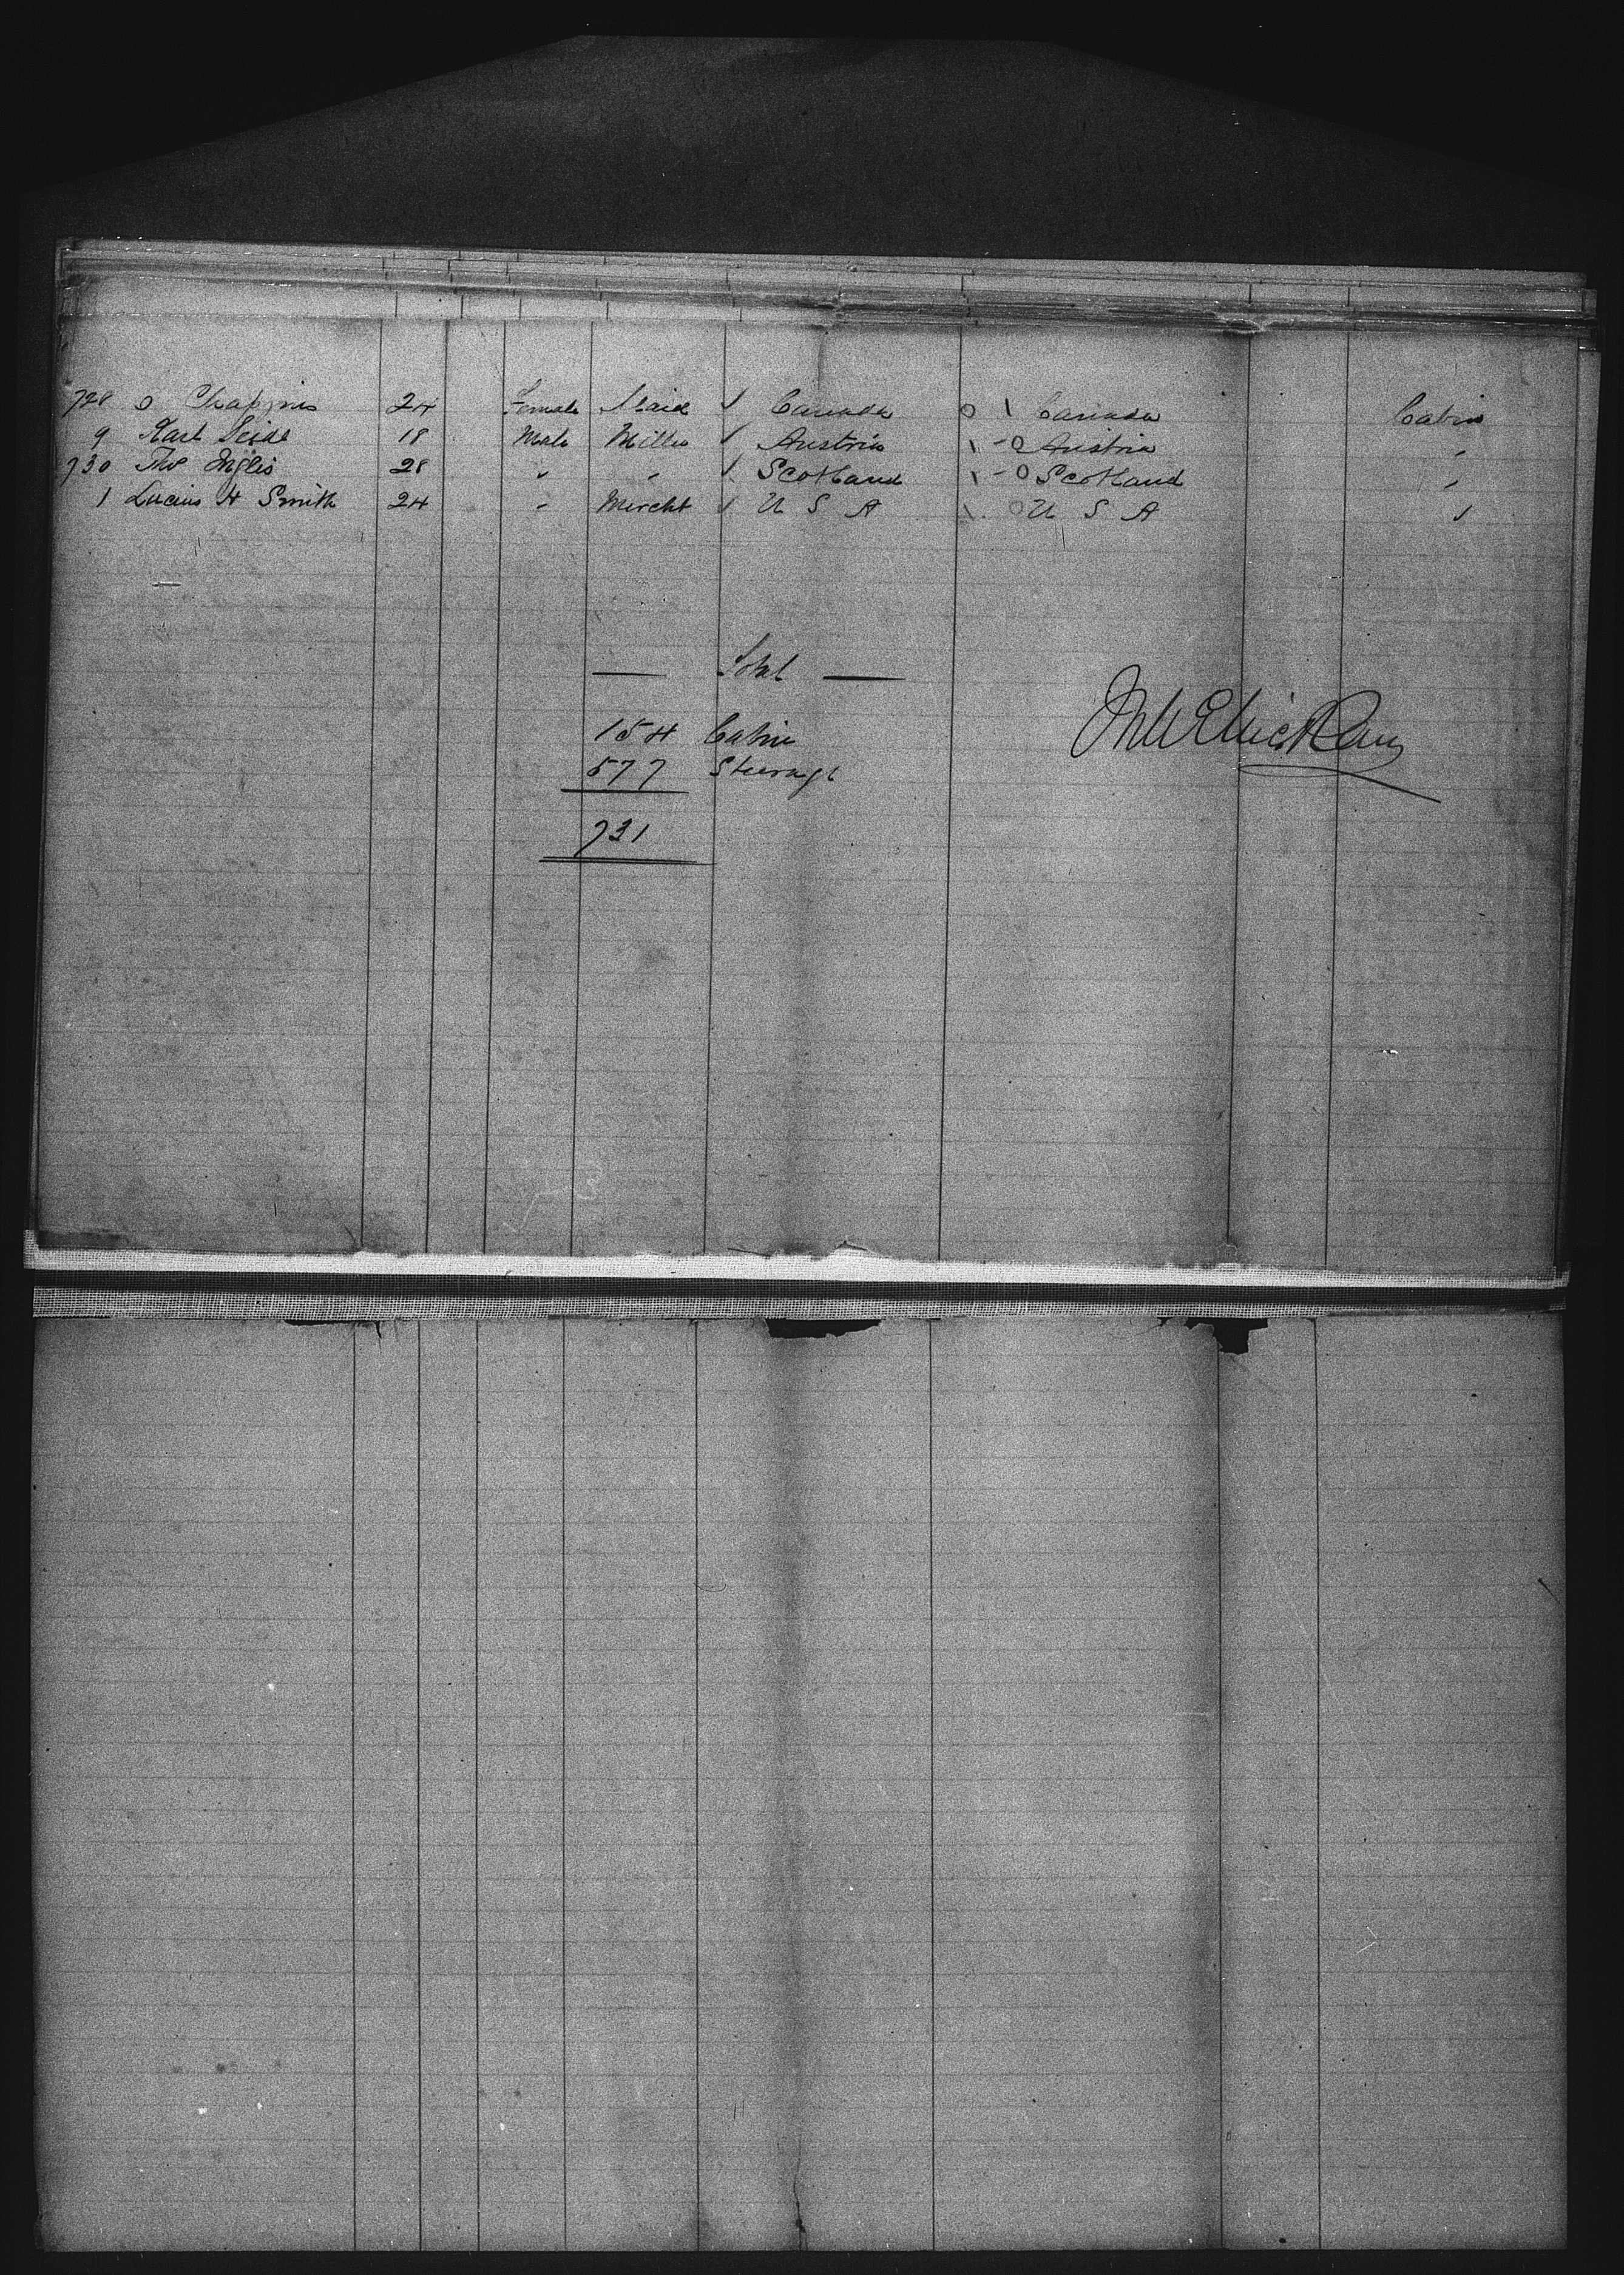 728 O Chappuis 24 Female Maid √ Canada 0 1 Canada Cabin
9 Karl Seidl 18 Male Miller √ Austria 1 - 0 Austria "
730 Tho Inglis 28 " " √ Scotland 1 - 0 Scotland "
1 Lucius H Smith 24 " Mercht √ U S A 1 0 U S A "
— Total —
154 Cabin
577 Steerage
731